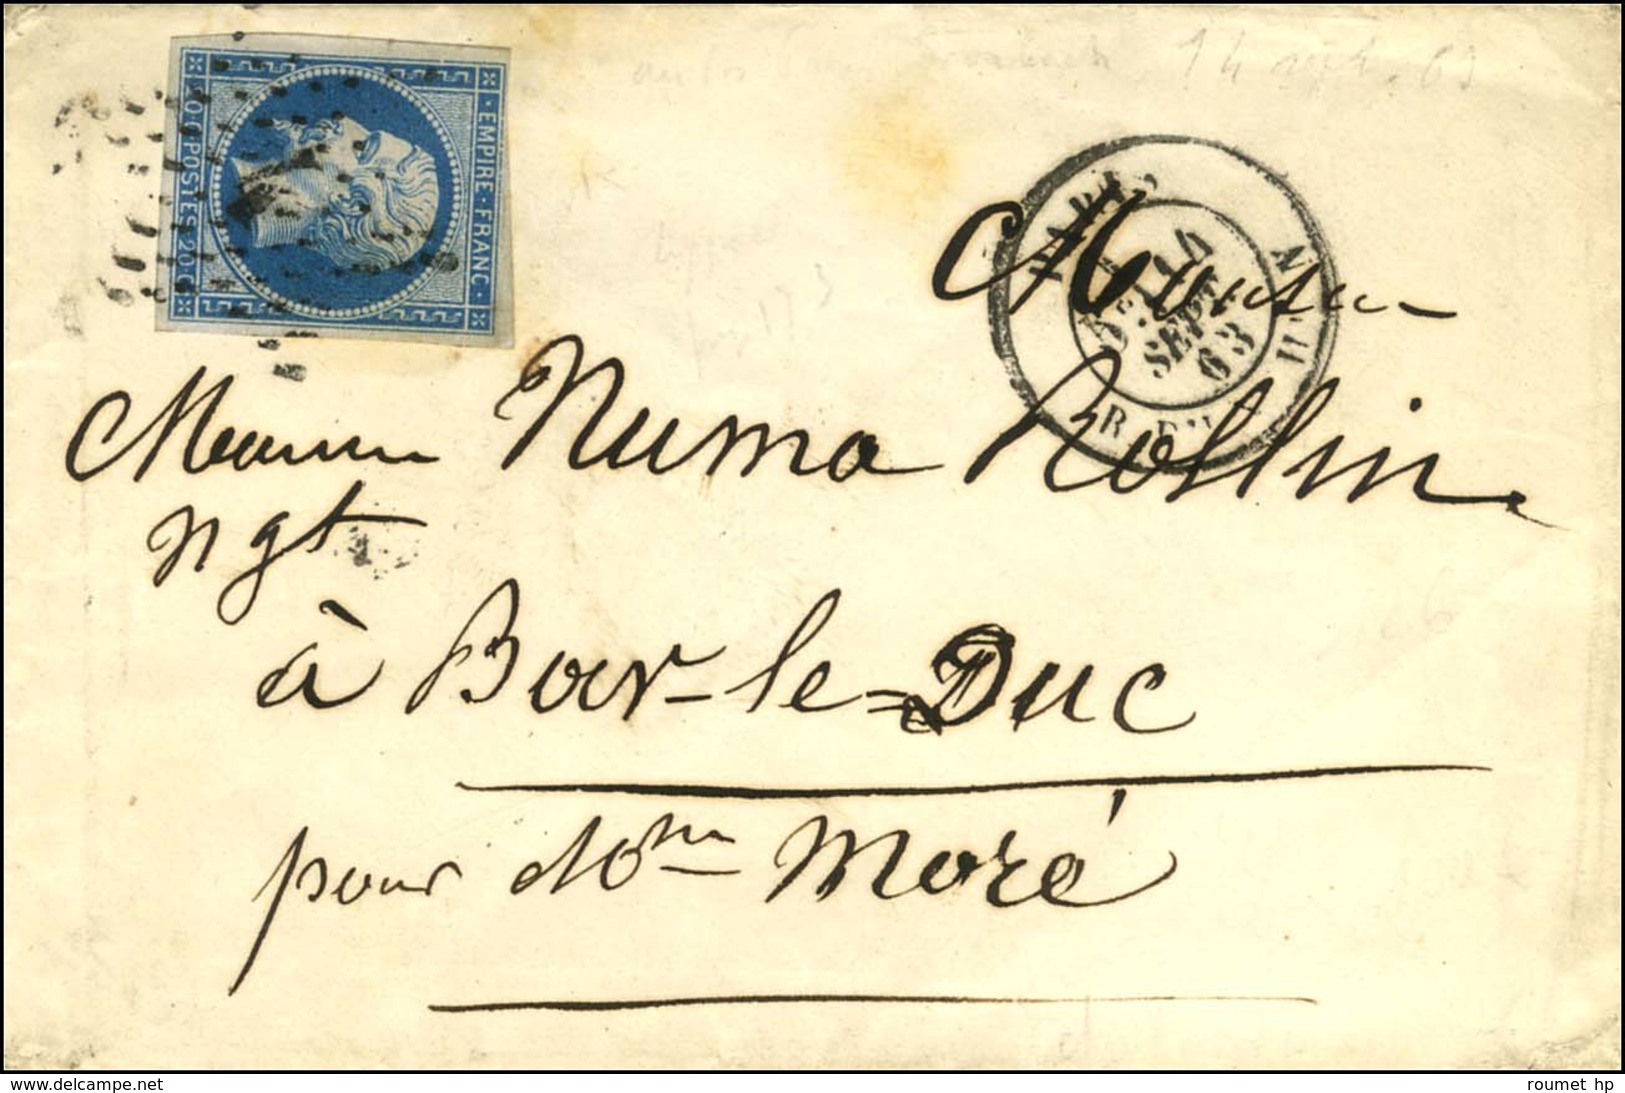 EMPIRE · FRANC ·
20 · C · POSTES · 20 · C
14 sept. 63
PARIS
SEPT
63
Monsieur
Monsieur Numa Rollin
ngt
à Bar-le-Duc
pour
Moré
© www.delcampe.net
roumet hp